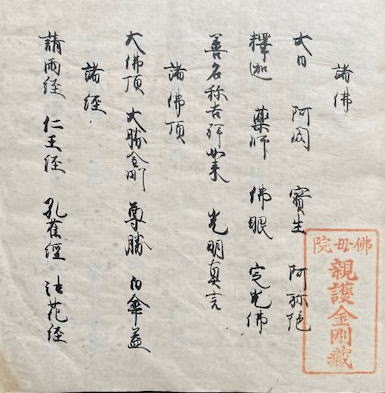 諸佛
大日 阿閦 寳生 阿弥陀
釋迦 藥師 佛眼 定光佛
善名称吉祥如来 光明真言
諸佛頂
大佛頂 大勝金剛 尊勝 白傘蓋
諸経
請雨経 仁王経 孔雀經 法花経
佛母院
親護金剛藏